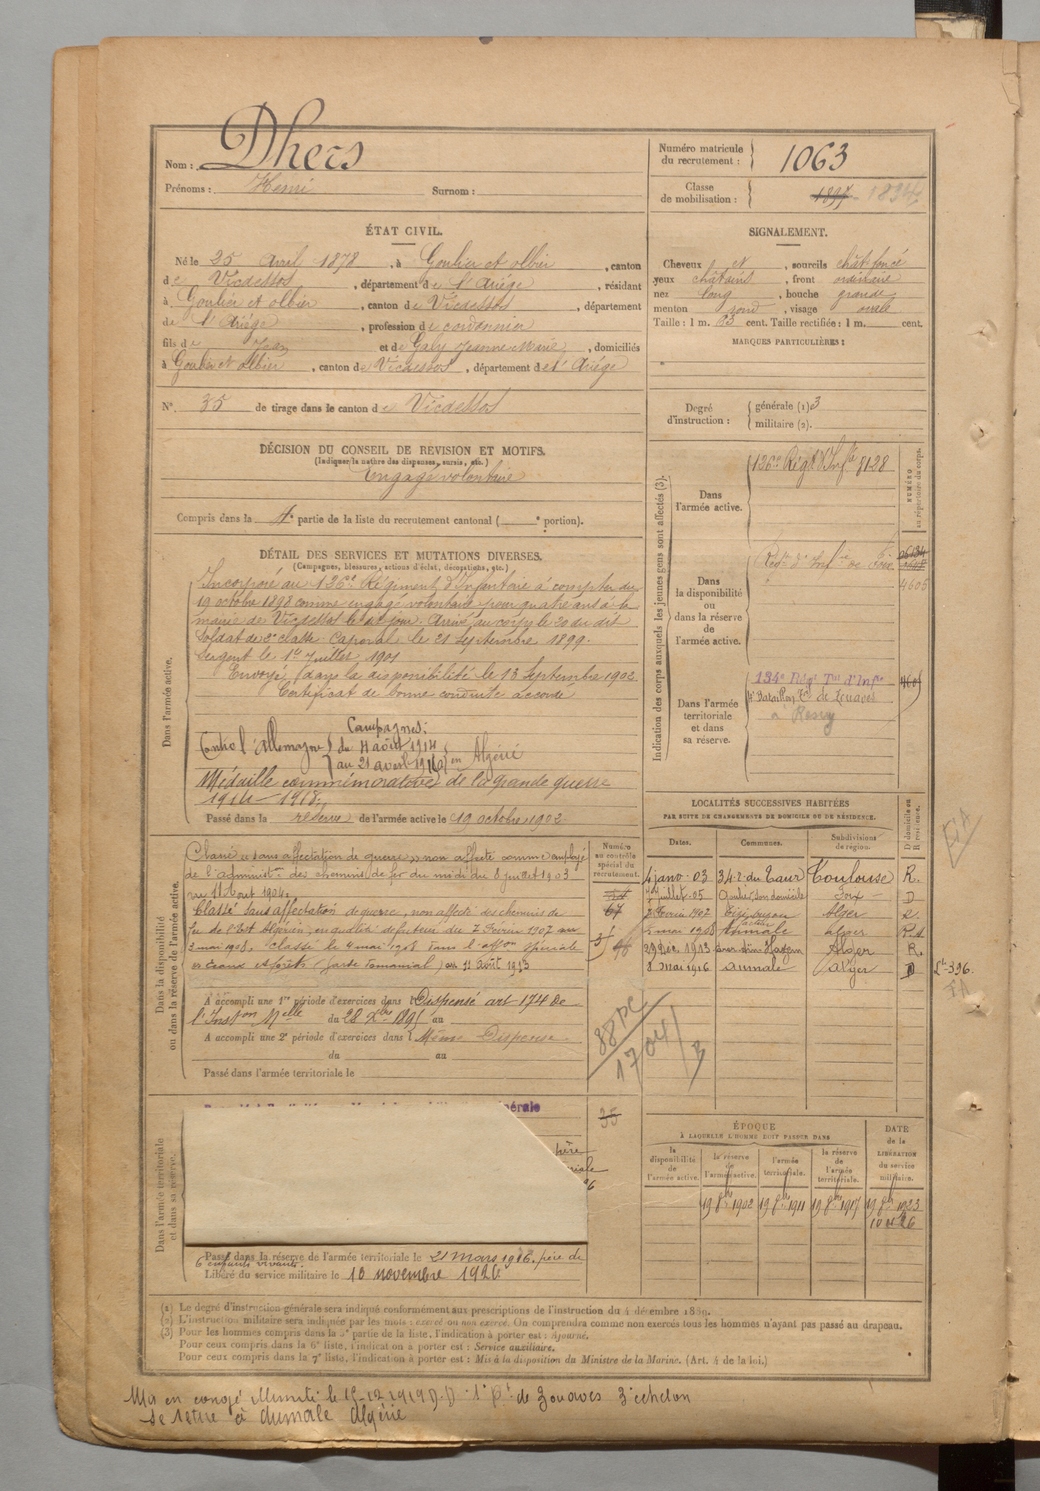 Nom : Dhers
Prénoms : Henri Surnom :
Numéro matricule du recrutement : 1063
Classe de mobilisation : 1897 1894
ÉTAT CIVIL.
Né le 25 Avril 1878, à Goulier et Olbier, canton
de Vicdessos, département de l'Ariége, résidant
à Goulier et Olbier, canton de Vicdessos, département
de l'Ariége, profession de cordonnier
fils de Jean et de Galy Jeanne Marie, domiciliés
à Goulier et Olbier, canton de Vicdessos, département de l'Ariége
N° 35 de tirage dans le canton de Vicdessos
SIGNALEMENT.
Cheveux et, sourcils chât foncé
yeux châtains, front ordinaire
nez long, bouche grande
menton rond, visage ovale
Taille : 1 m. 63 cent. Taille rectifiée : 1 m. cent.
MARQUES PARTICULIÈRES :
Degré d'instruction : générale (1) 3
militaire (2).
DÉCISION DU CONSEIL DE REVISION ET MOTIFS.
(Indiquer la nature des dispenses, sursis, etc.)
Engagé volontaire
Compris dans la 4e partie de la liste du recrutement cantonal ( e portion).
DÉTAIL DES SERVICES ET MUTATIONS DIVERSES.
(Campagnes, blessures, actions d'éclat, décorations, etc.)
Dans l'armée active.
Incorporé au 126e Régiment d'Infanterie à compter du
19 octobre 1898 comme engagé volontaire pour quatre ans à la
mairie de Vicdessos le dit jour. Arrivé au corps le 20 du dit
Soldat de 2e classe. Caporal le 21 Septembre 1899.
Sergent le 1er Juillet 1901
Envoyé dans la disponibilité le 13 Septembre 1902.
Certificat de bonne conduite accordé
Campagnes :
Contre l'Allemagne du 4 août 1914
au 21 avril 1916 en Algérie
Médaille commémorative de la grande guerre
1914 - 1918.
Passé dans la réserve de l'armée active le 19 octobre 1902
Indication des corps auxquels les jeunes gens sont affectés (3).
NUMÉRO au répertoire du corps.
Dans l'armée active.
126e Régt d'Infie 8128
Dans la disponibilité ou dans la réserve de l'armée active.
Régt d'Infie de Foix
4605
Dans l'armée territoriale et dans sa réserve.
134e Régt Tal d'Infie 4605
4e Bataillon Tal de Zouaves
LOCALITÉS SUCCESSIVES HABITÉES
PAR SUITE DE CHANGEMENTS DE DOMICILE OU DE RÉSIDENCE.
Dates. Communes. Subdivisions de région. D domicile ou R résidence.
4 janv. 03 34 r. du Taur Toulouse R.
Juillet 05 Goulier, son domicile Foix D
7 Février 1907 Alger R.
5 mai 1908 Aumale Alger R.
29 Déc. 1913 Alger R.
8 mai 1916 Aumale Alger D
Dans la disponibilité ou dans la réserve de l'armée active.
Numéro au contrôle spécial du recrutement.
Classé « sans affectation de guerre » non affecté comme employé
de l'administon des chemins de fer du midi du 8 juillet 1903
au 11 Aout 1904.
Classé sans affectation de guerre, non affecté des chemins de
fer de l'Est Algérien, en qualité de du 7 Février 1907 au
2 mai 1908. Classé le 4 mai 1908 dans l'affon spéciale
des Eaux et Forêts (Garde Domanial) au 11 août 1913
A accompli une 1re période d'exercices dans l Dispensé art 174 de
l'Inston Melle du 28 Xbre 1895 au
A accompli une 2e période d'exercices dans l Même Dispense
du au
Passé dans l'armée territoriale le
88 PC
1704
Dans l'armée territoriale et dans sa réserve.
35
Passé dans la réserve de l'armée territoriale le 21 mars 1916. père de
6 enfants vivants.
Libéré du service militaire le 10 novembre 1926
ÉPOQUE
À LAQUELLE L'HOMME DOIT PASSER DANS
DATE de la LIBÉRATION du service militaire.
la disponibilité de l'armée active. la réserve de l'armée active. l'armée territoriale. la réserve de l'armée territoriale.
19 8bre 1902 19 8bre 1911 19 8bre 1917 19 8bre 1923
10 26
(1) Le degré d'instruction générale sera indiqué conformément aux prescriptions de l'instruction du 4 décembre 1889.
(2) L'instruction militaire sera indiquée par les mots : exercé ou non exercé. On comprendra comme non exercés tous les hommes n'ayant pas passé au drapeau.
(3) Pour les hommes compris dans la 5e partie de la liste, l'indication à porter est : Ajourné.
Pour ceux compris dans la 6e liste, l'indication à porter est : Service auxiliaire.
Pour ceux compris dans la 7e liste, l'indication à porter est : Mis à la disposition du Ministre de la Marine. (Art. 4 de la loi.)
Mis en congé illimité le 15-12 1919 D.D. 1er Rt de Zouaves 3e échelon
Se retire à Aumale Algérie